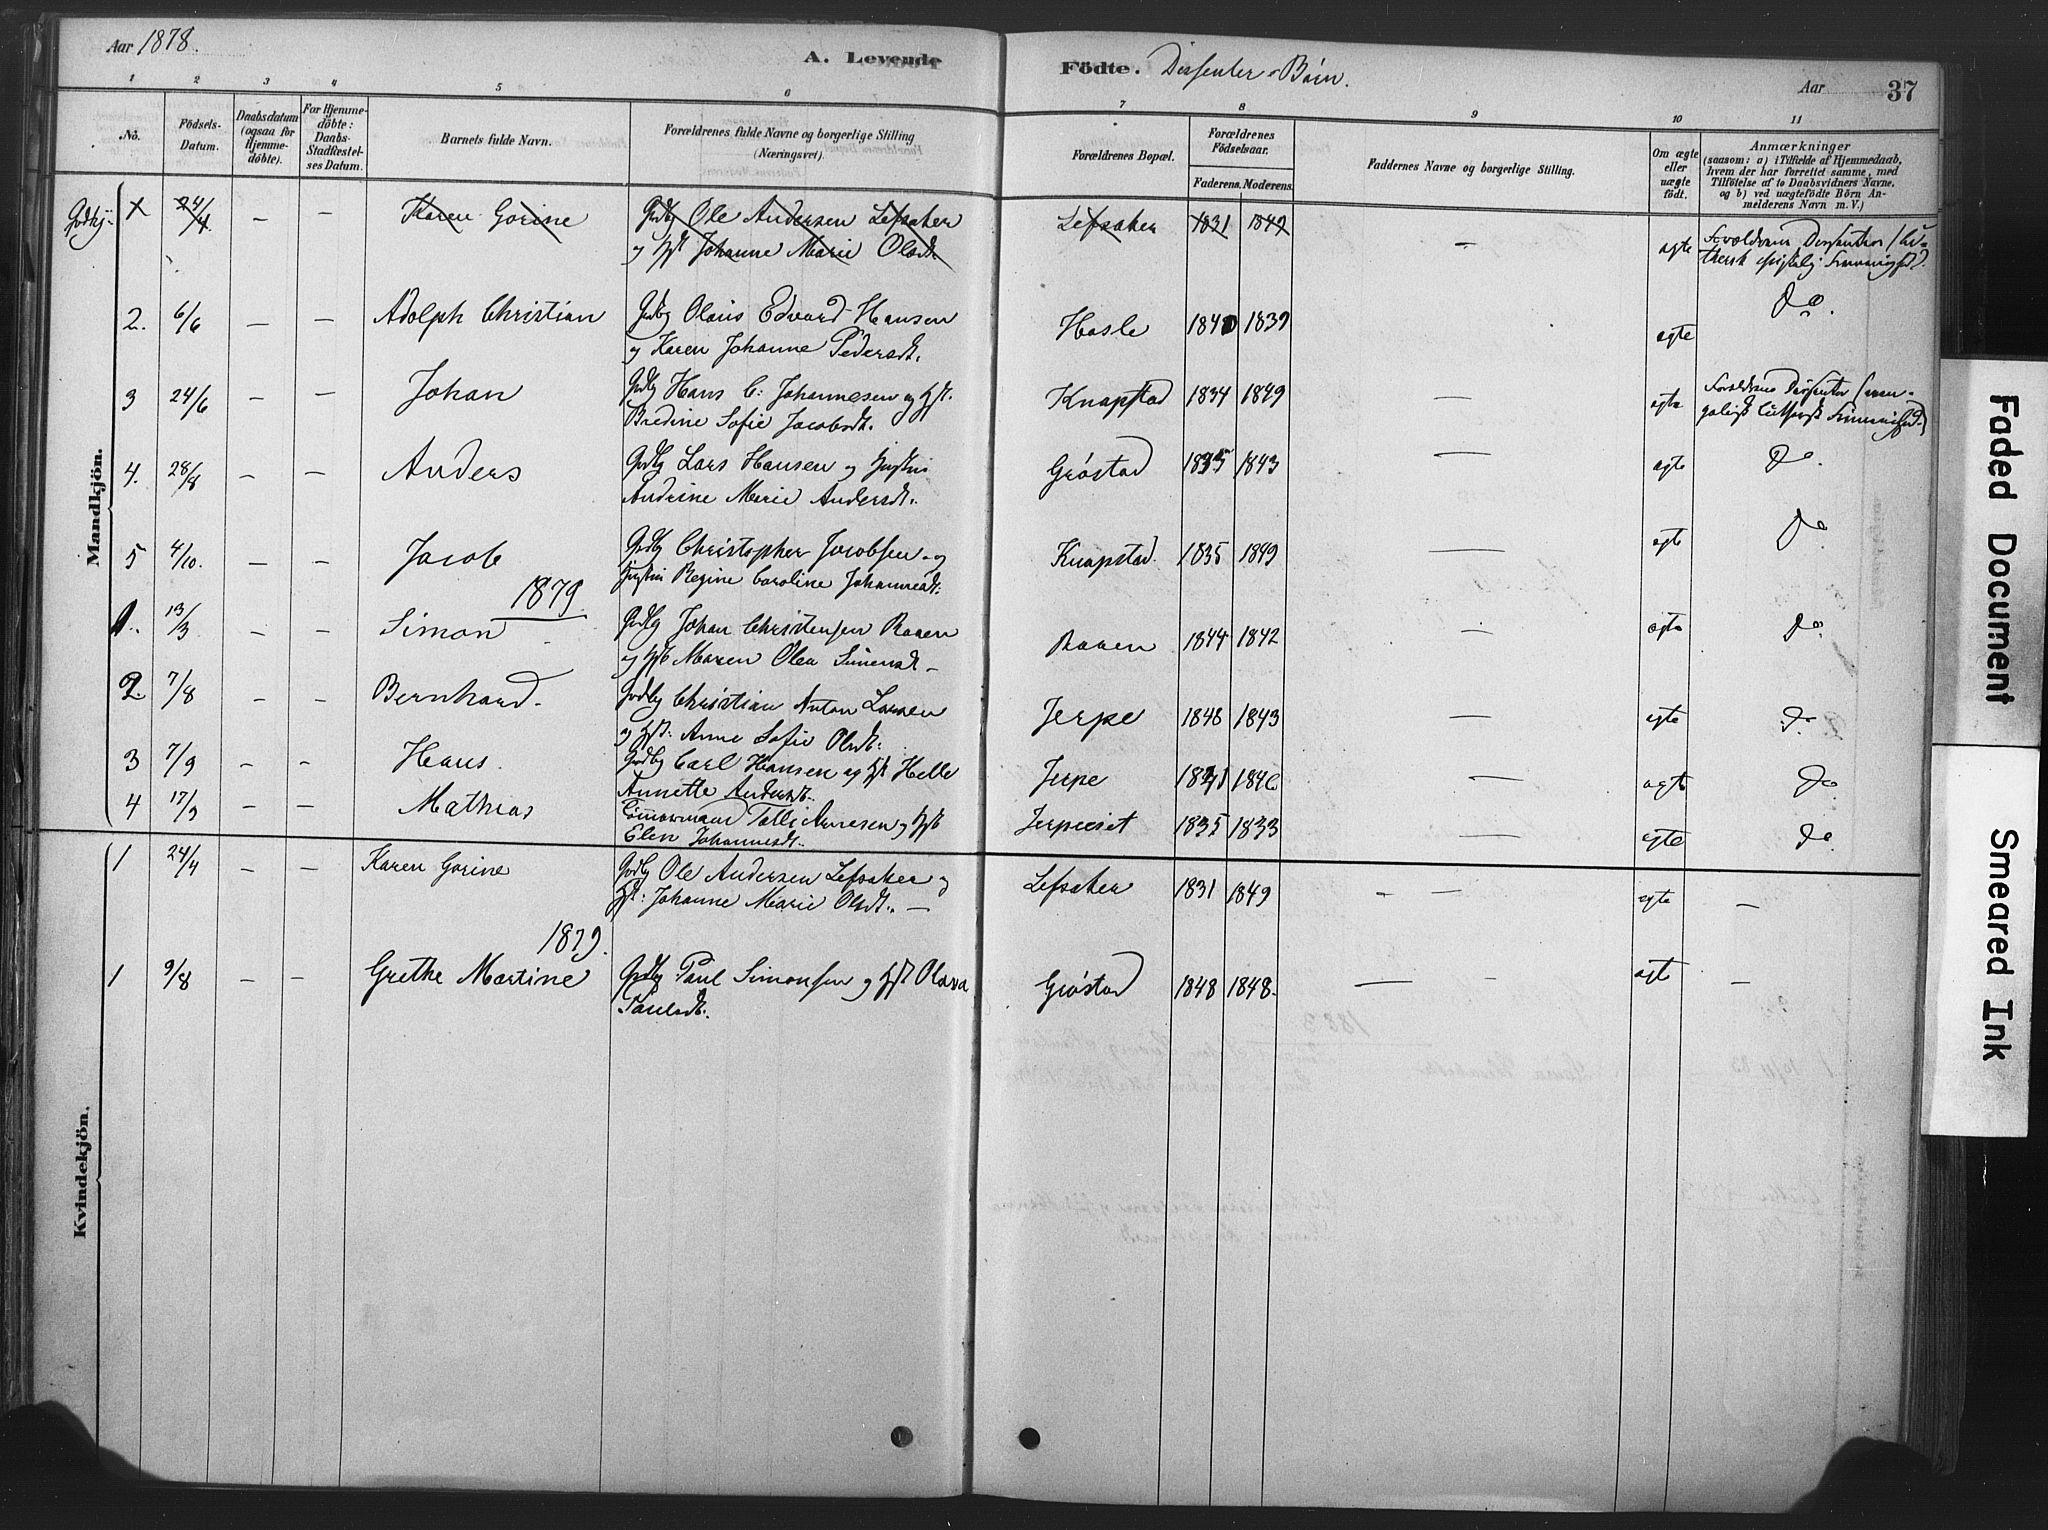 Aar 1878.
A. Levende
Födte. Dissenter-Börn.
Aar
37
1 2 3 4 5 6 7 8 9 10 11
No.
Födsels-Datum.
Daabsdatum (ogsaa for Hjemmedöbte).
For Hjemmedöbte: Daabs-Stadfæstelses Datum.
Barnets fulde Navn.
Forældrenes fulde Navne og borgerlige Stilling (Næringsvei).
Forældrenes Bopæl.
Forældrenes Födselsaar.
Faderens. Moderens.
Faddernes Navne og borgerlige Stilling.
Om ægte eller uægte födt.
Anmærkninger
(saasom: a) i Tilfælde af Hjemmedaab, hvem der har forrettet samme, med Tilföielse af to Daabsvidners Navne, og b) ved uægtefödte Börn Anmelderens Navn m. V.)
Mandkjön.
1 24/4 – – Karen Gorine Grdbg Ole Andersen Lefsaker Lefsaker 1831 1849 – ægte Forældrene Dissentere
og Hst Johanne Marie Olsdt.
2. 6/6 – – Adolph Christian Grdbg Olaus Edvard Hansen Hasle 1840 1839 ægte Do
og Karen Johanne Pedersdt.
3 24/6 – – Johan Grdbg Hans C: Johannesen og Hst. Knapstad 1834 1849 – ægte Forældrene Dissenter
Bredine Sofie Jacobsdt.
4. 28/8 – – Anders Grdbg Lars Hansen og Hustru Gröstad 1835 1843 – ægte Do.
Andrine Marie Andersdt.
5 4/10 – – Jacob Grdbg Christopher Jacobsen og Knapstad. 1835 1849 – ægte Do
Hustru Regine Caroline Johannesdt:
1879.
1. 13/3 – – Simon Grdbg Johan Christensen Raaen Raaen 1844 1842 – ægte Do.
og Hst Maren Olea Simensdt –
2. 7/8 – – Bernhard. Grdbg Christian Anton Larsen Jerpe 1848 1843 – ægte Do
og Hst: Anne Sofie Olsdt:
3 7/9 – – Hans. Grdbg Carl Hansen og Hst Helle Jerpe 1841 1846 – ægte Do
Annette Andersdt.
4 17/3 – – Mathias Tömmermand Aanesen og Hst Jerpeeiet 1835 1833 – ægte Do.
Elen Johannesdt.
Kvindekjön.
1 24/4 – – Karen Gorine Grdbg Ole Andersen Lefsaker og Lefsaker 1831 1849 – – ægte –
Hst: Johanne Marie Olsdt. –
1879.
1 9/8 – – Grethe Martine Grdbg Paul Simonsen og Hst Olava Gröstad 1848 1848. – – ægte –
Paulsdt.
Faded Document
Smeared Ink